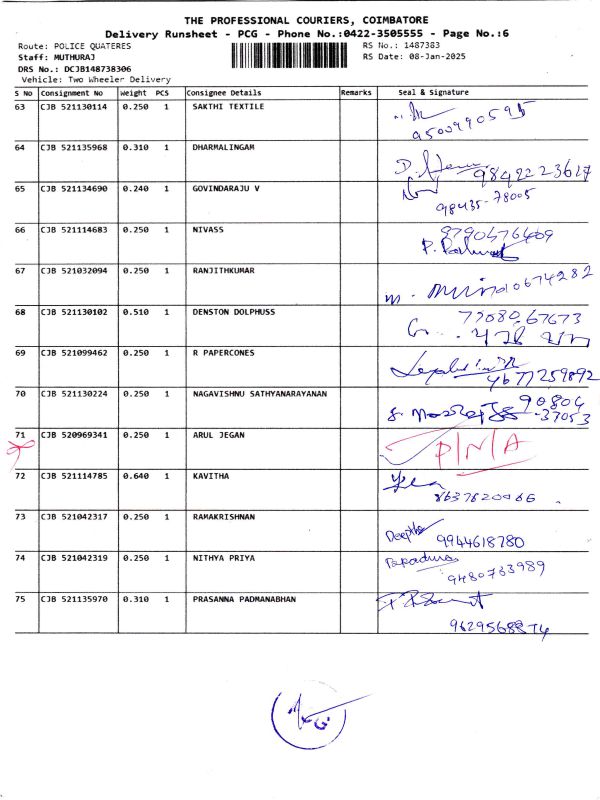 THE PROFESSIONAL COURIERS, COIMBATORE
Delivery Runsheet - PCG - Phone No.:0422-3505555 - Page No.:6
Route: POLICE QUATERES RS No.: 1487383
Staff: MUTHURAJ RS Date: 08-Jan-2025
DRS No.: DCJB148738306
Vehicle: Two Wheeler Delivery
S No Consignment No Weight PCS Consignee Details Remarks Seal & Signature
63 CJB 521130114 0.250 1 SAKTHI TEXTILE
9500990595
64 CJB 521135968 0.310 1 DHARMALINGAM
9842223617
65 CJB 521134690 0.240 1 GOVINDARAJU V
98435-78005
66 CJB 521114683 0.250 1 NIVASS
9790476409
67 CJB 521032094 0.250 1 RANJITHKUMAR
68 CJB 521130102 0.510 1 DENSTON DOLPHUSS
69 CJB 521099462 0.250 1 R PAPERCONES
70 CJB 521130224 0.250 1 NAGAVISHNU SATHYANARAYANAN
90804
-37053
71 CJB 520969341 0.250 1 ARUL JEGAN P/N/A
72 CJB 521114785 0.640 1 KAVITHA
73 CJB 521042317 0.250 1 RAMAKRISHNAN
Deeptha 9944618780
74 CJB 521042319 0.250 1 NITHYA PRIYA
9480733989
75 CJB 521135970 0.310 1 PRASANNA PADMANABHAN
9629568874